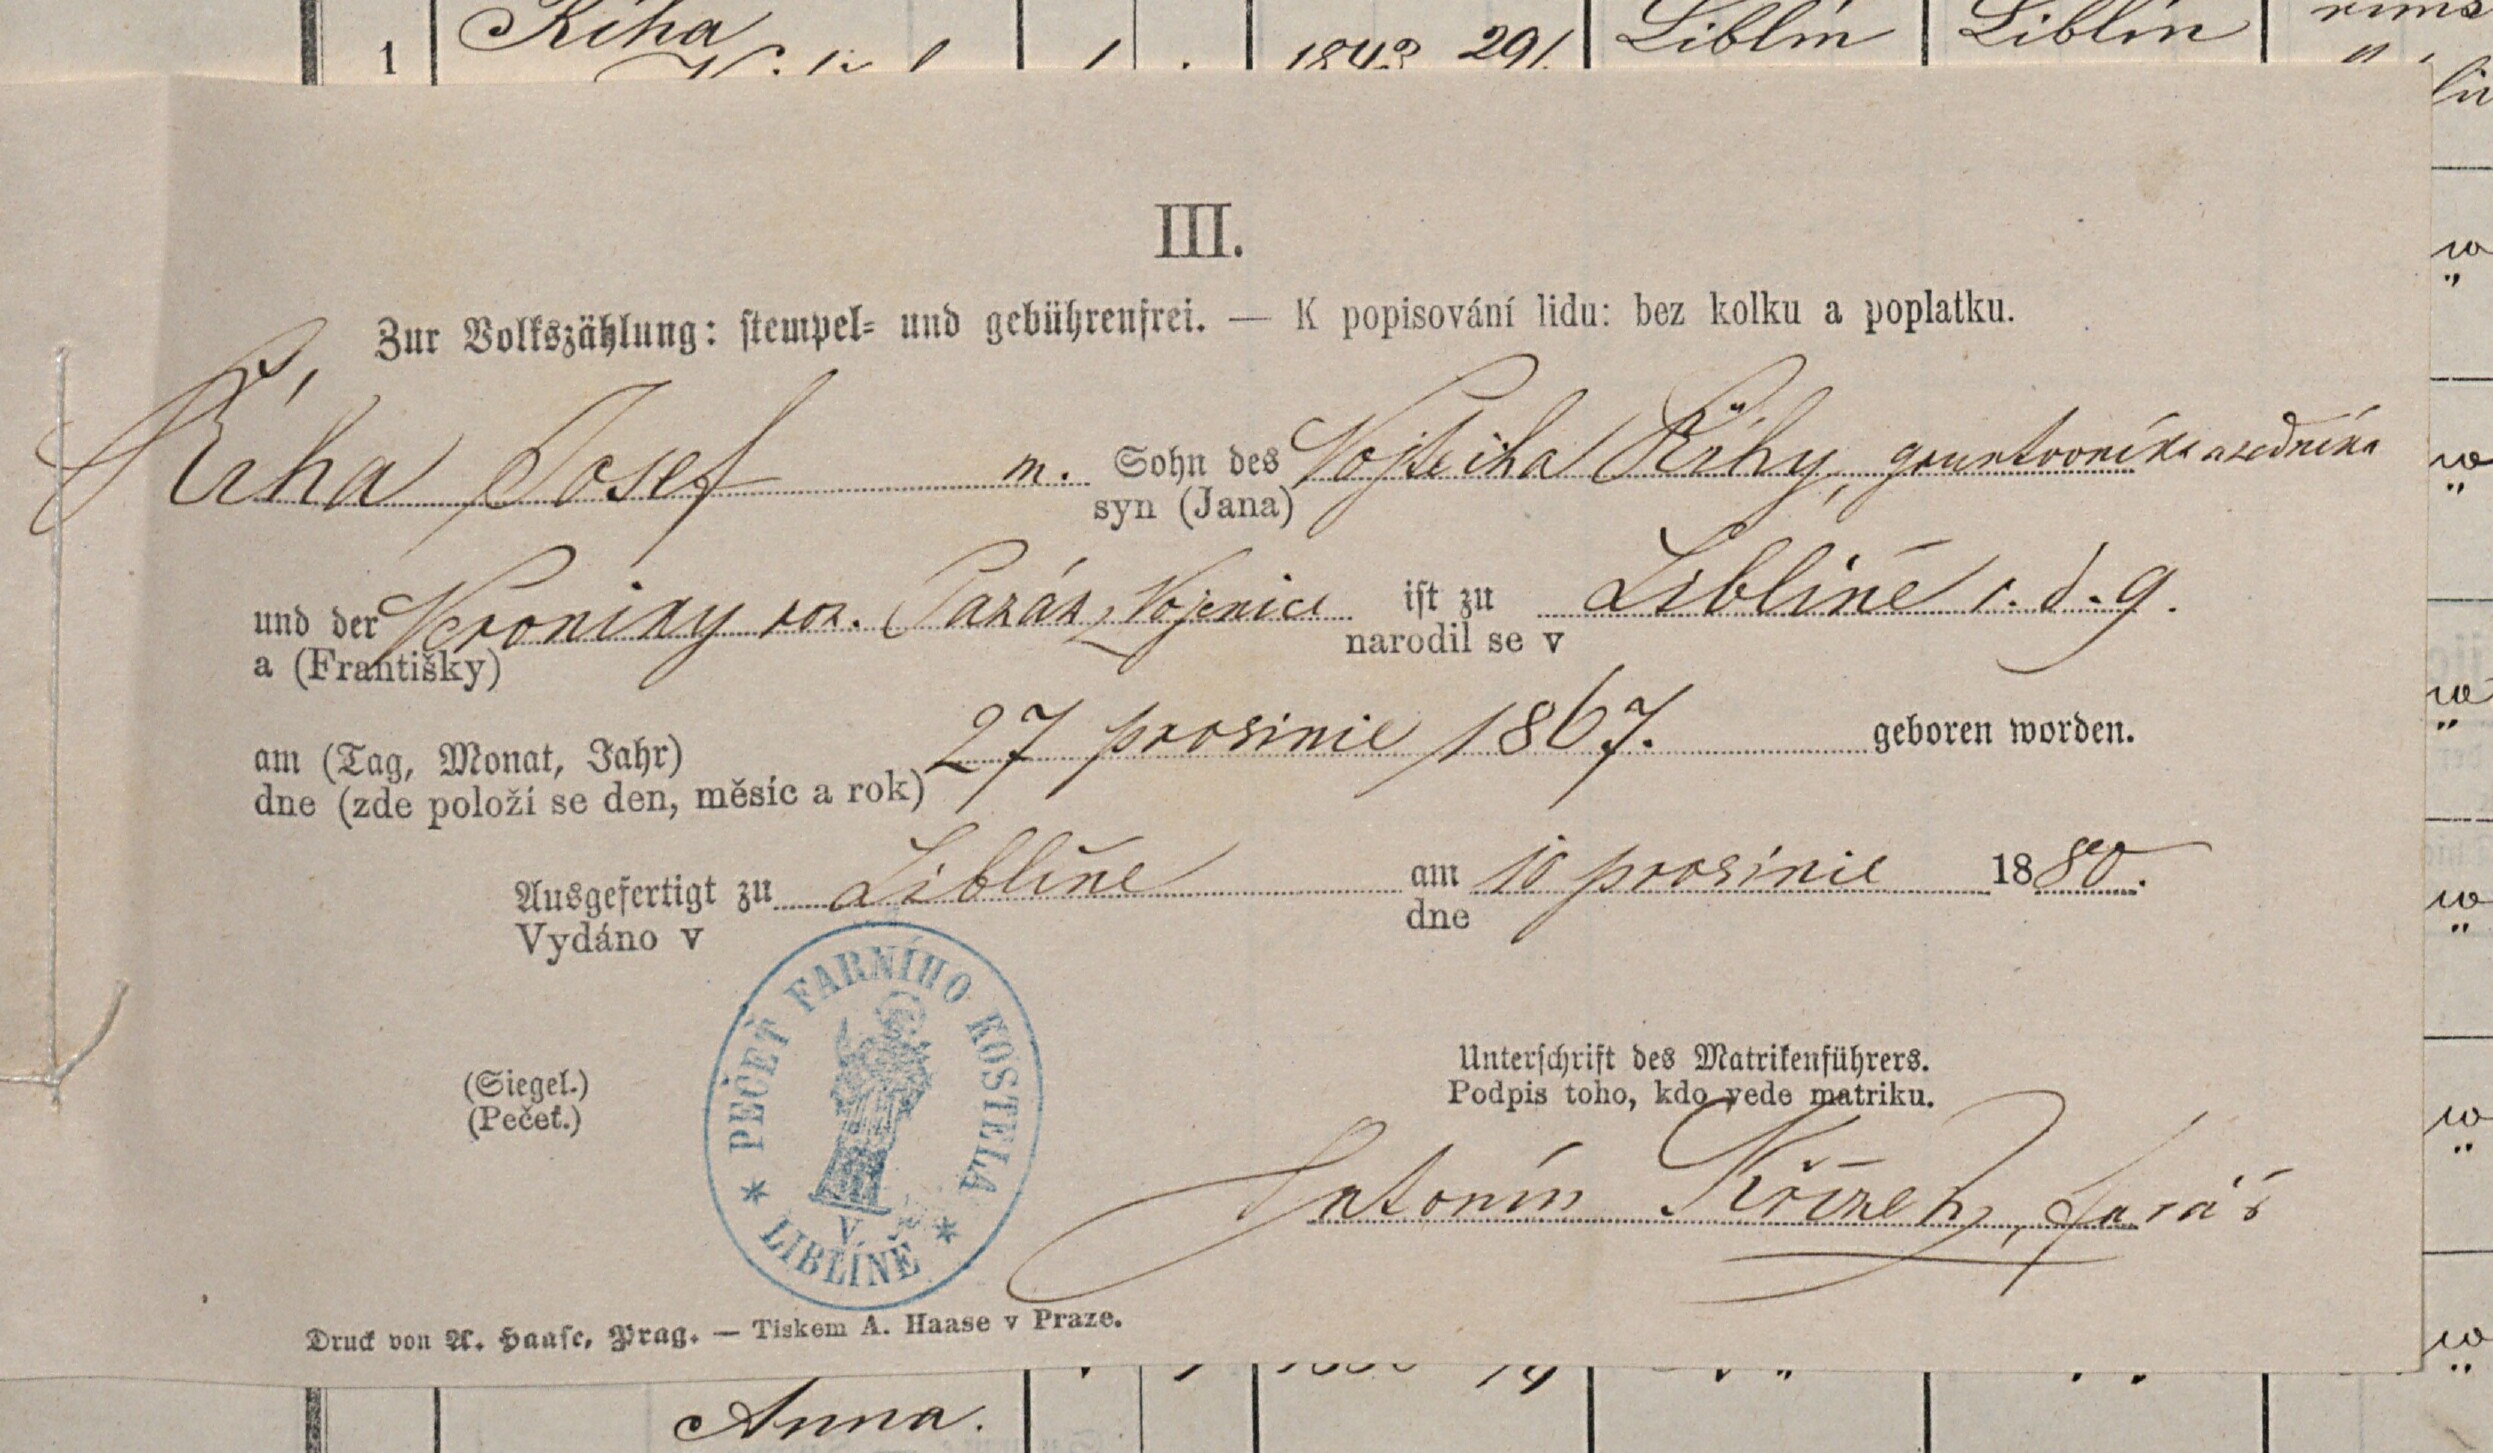 Říha
1 1843 29/ Liblín Liblín
III.
Zur Volkszählung: stempel- und gebührenfrei. — K popisování lidu: bez kolku a poplatku.
Říha Josef m. Sohn des Vojtěcha Říhy, gruntovníka a sedníka
syn (Jana)
und der Veroniky roz. ist zu Liblíně č. d. 9.
a (Františky) narodil se v
am (Tag, Monat, Jahr) 27 prosince 1867. geboren worden.
dne (zde položí se den, měsíc a rok)
Ausgefertigt zu Liblíně am 10 prosince 1880.
Vydáno v dne
PEČEŤ FARNÍHO KOSTELA
V
LIBLÍNĚ
(Siegel.)
(Pečeť.)
Unterschrift des Matrikenführers.
Podpis toho, kdo vede matriku.
Antonín Křížek, farář
Druck von A. Haase, Prag. — Tiskem A. Haase v Praze.
Anna.